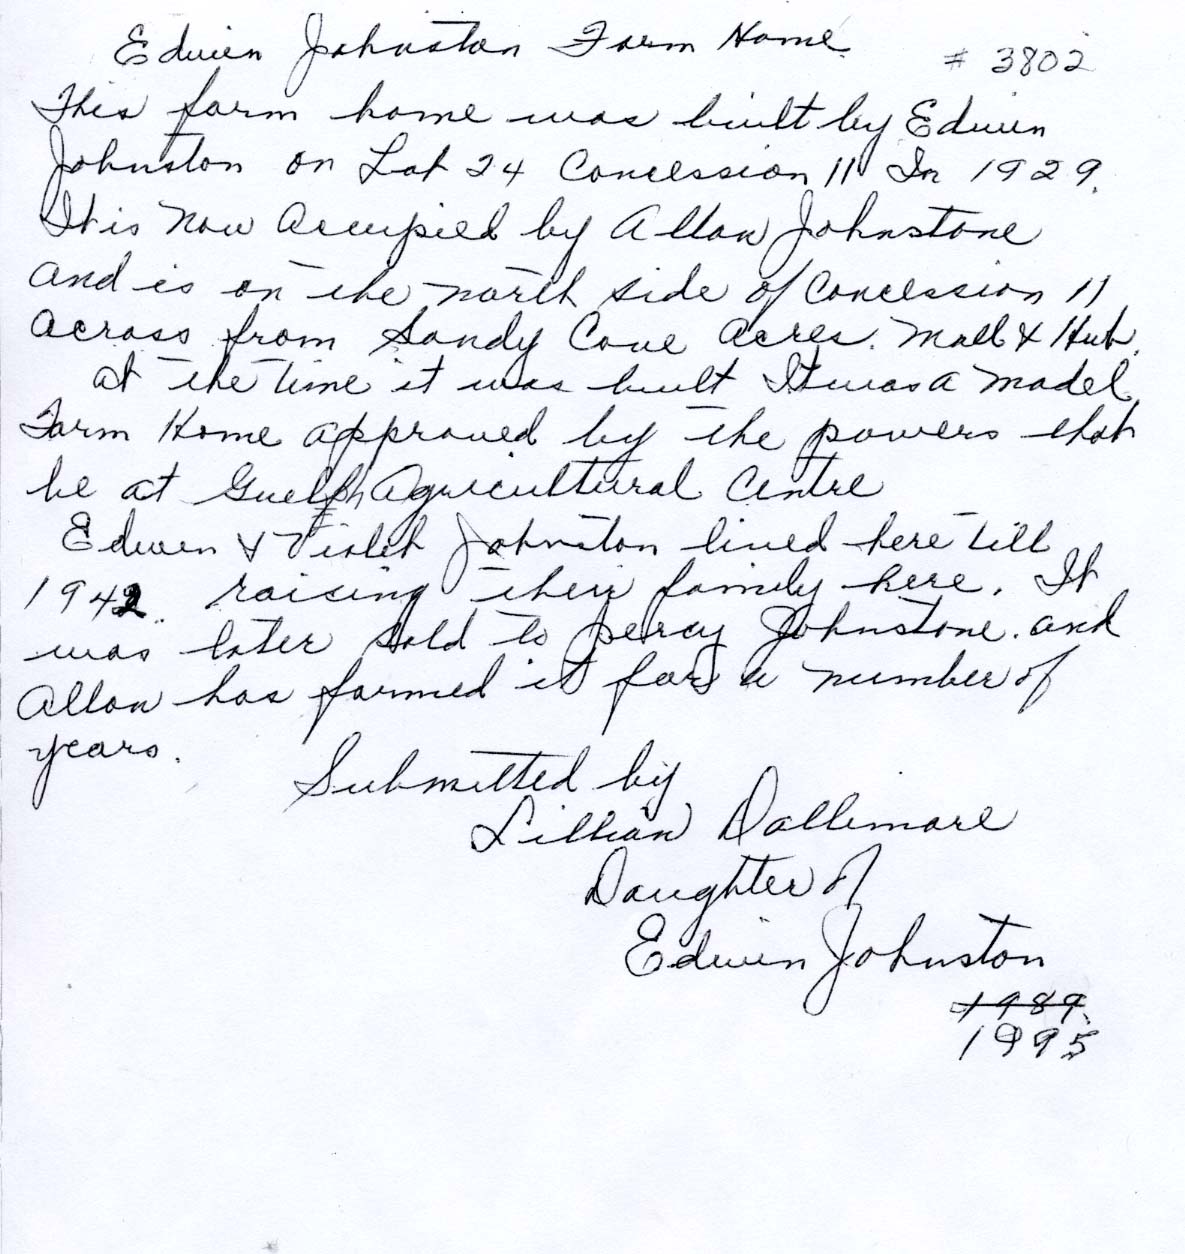 Edwin Johnston Farm Home
# 3802
This farm home was built by Edwin
Johnston on Lot 24 Concession 11 In 1929.
It is now occupied by Allan Johnstone
and is on the north side of Concession 11
across from Sandy Cove Acres. Mall & Hub.
at the time it was built It was a Model
Farm Home approved by the powers that
be at Guelph Agricultural Centre
Edwin & Violet Johnston lived here till
1942. raising their family here. It
was later sold to Percy Johnstone. and
Allan has farmed it for a number of
years.
Submitted by
Lillian Dallimore
Daughter of
Edwin Johnston
1989.
1995